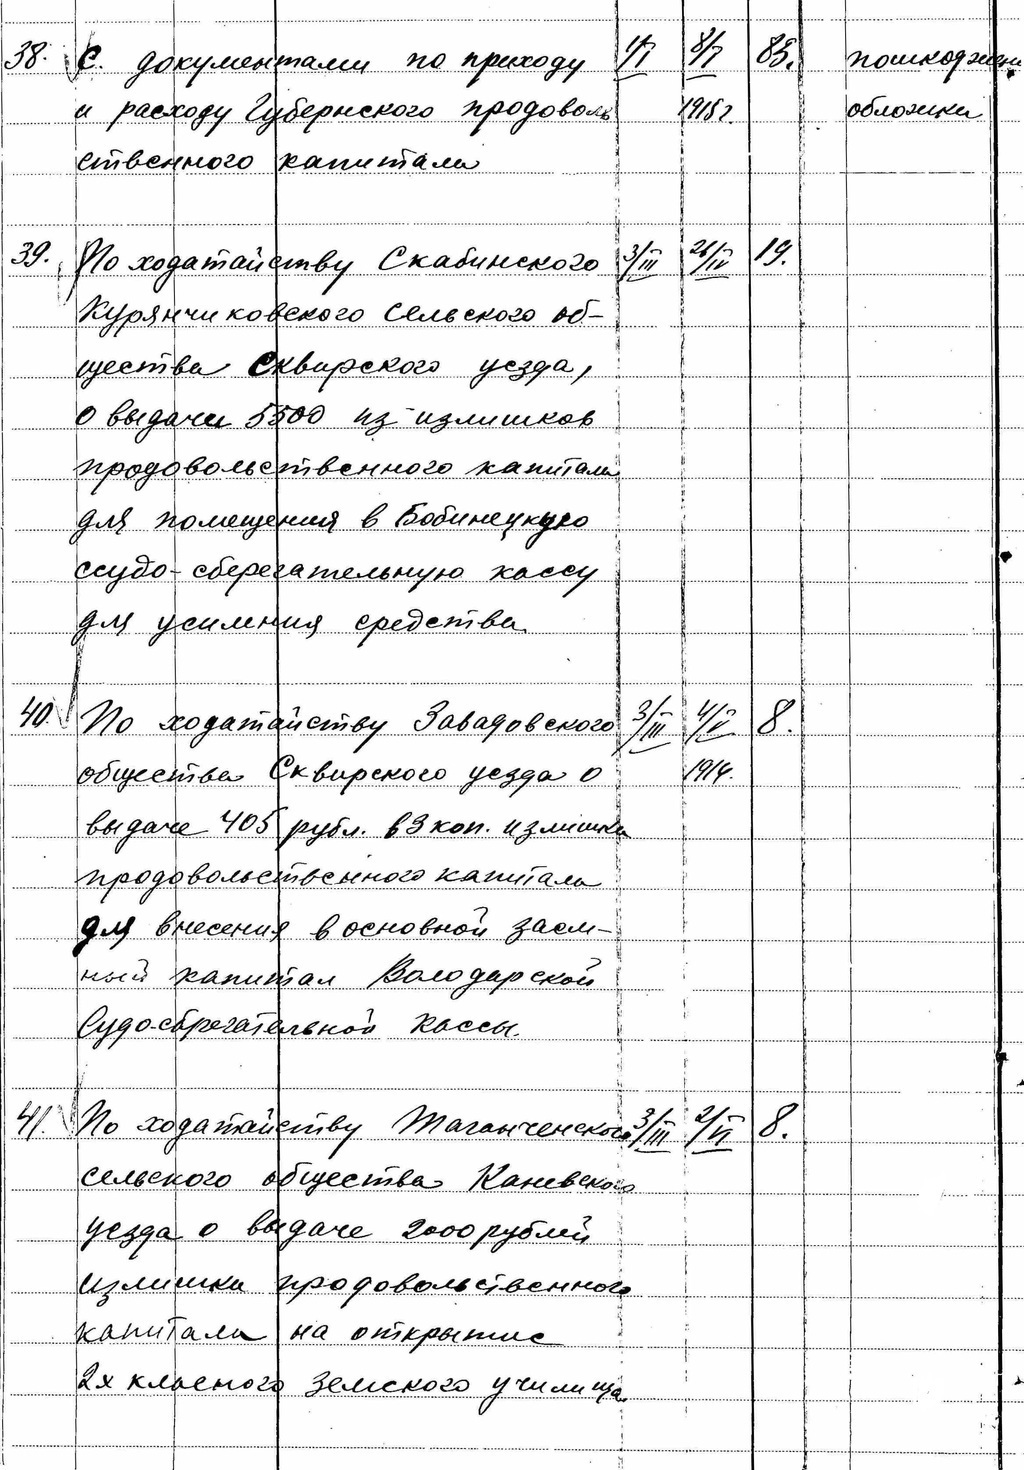 38. С документами по приходу 1/I 8/I 85. пошкоджени
и расходу Губернского продоволь 1915 г. обложки
ственного капитала
39. По ходатайству Скабинского 3/III 26/IV 19.
Курянчиковского сельского об-
щества Сквирского уезда,
о выдачи 5500 из излишков
продовольственного капитала
для помещения в Бобинецкую
ссудо-сберегательную кассу
для усиления средства
40. По ходатайству Завадовского 3/III 4/V 8.
общества Сквирского уезда о 1914.
выдаче 405 рубл. 83 коп. излишка
продовольственного капитала
для внесения в основной заем-
ный капитал Володарской
Судо-сбрегательной кассы.
41. По ходатайству Таганченского 3/III 2/VI 8.
сельского общества Каневского
уезда о выдаче 2000 рублей
излишка продовольственного
капитала на открытие
2х класного земского училища